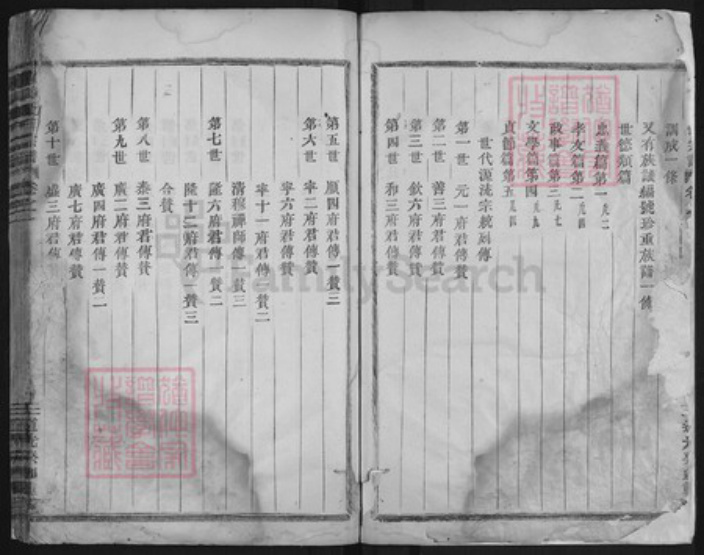 訓戒一條
又有族議編號珍重族譜一條
世德類篇
忠義篇第一 凡二
孝友篇第二 凡四
政事篇第三 凡七
文學篇第四 凡九
貞節篇第五 凡四
世代源流宗統列傳
第一世 元一府君傳贊
第二世 善三府君傳贊
第三世 欽六府君傳贊
第四世 和三府君傳贊
第五世 順四府君傳一贊三
第六世 寧二府君傳贊
寧六府君傳贊
寧十一府君傳一贊二
清穆禪師傳一贊三
第七世 隆六府君傳一贊二
隆十二府君傳一贊三
合贊
第八世 泰三府君傳贊
第九世 廣二府君傳贊
廣四府君傳一贊二
廣七府君傳贊
第十世 盛三府君傳
FamilySearch